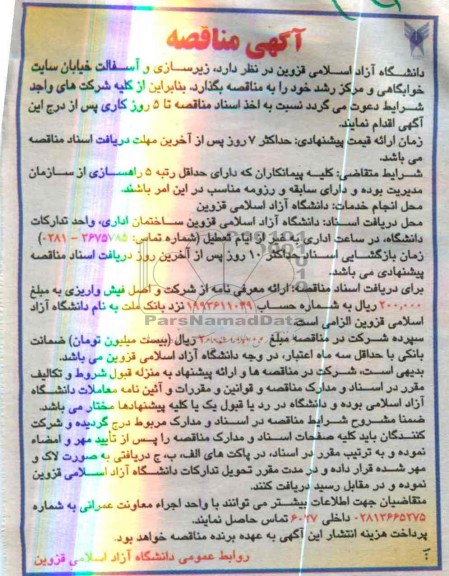 آگهی مناقصه
دانشگاه آزاد اسلامی قزوین در نظر دارد، زیرسازی و آسفالت خیابان سایت
خوابگاهی و مرکز رشد خود را به مناقصه بگذارد. بنابراین از کلیه شرکت های واجد
شرایط دعوت می گردد نسبت به اخذ اسناد مناقصه تا ۵ روز کاری پس از درج این
آگهی اقدام نمایند.
زمان ارائه قیمت پیشنهادی: حداکثر ۷ روز پس از آخرین مهلت دریافت اسناد مناقصه
می باشد.
شرایط متقاضی: کلیه پیمانکاران که دارای حداقل رتبه ۵ راهسازی از سازمان
مدیریت بوده و دارای سابقه و رزومه مناسب در این امر باشند.
محل انجام خدمات: دانشگاه آزاد اسلامی قزوین
محل دریافت اسناد: دانشگاه آزاد اسلامی قزوین ساختمان اداری، واحد تدارکات
دانشگاه، در ساعت اداری به غیر از ایام تعطیل (شماره تماس: ۳۶۷۵۷۸۵ - ۰۲۸۱)
زمان بازگشایی اسناد: حداکثر ۱۰ روز پس از آخرین روز دریافت اسناد مناقصه
پیشنهادی می باشد.
برای دریافت اسناد مناقصه: ارائه معرفی نامه از شرکت و اصل فیش واریزی به مبلغ
۲۰۰,۰۰۰ ریال به شماره حساب ۱۸۹۳۶۱۱۰۴۹ نزد بانک ملت به نام دانشگاه آزاد
اسلامی قزوین الزامی است
ParsNamadData
سپرده شرکت در مناقصه مبلغ ریال (بیست میلیون تومان) ضمانت
بانکی با حداقل سه ماه اعتبار، در وجه دانشگاه آزاد اسلامی قزوین می باشد.
بدیهی است، شرکت در مناقصه ها و ارائه پیشنهاد به منزله قبول شروط و تکالیف
مقرر در اسناد و مدارک مناقصه و قوانین و مقررات و آئین نامه معاملات دانشگاه
آزاد اسلامی بوده و دانشگاه در رد یا قبول یک یا کلیه پیشنهادها مختار می باشد.
ضمنا مشروح شرایط مناقصه در اسناد و مدارک مربوط درج گردیده و شرکت
کنندگان باید کلیه صفحات اسناد و مدارک مناقصه را پس از تأیید مهر و امضاء
نموده و به ترتیب مقرر در اسناد، در پاکت های الف، ب، ج دریافتی به صورت لاک و
مهر شده قرار داده و در مدت مقرر تحویل تدارکات دانشگاه آزاد اسلامی قزوین
نموده و در مقابل رسید دریافت کنند.
متقاضیان جهت اطلاعات بیشتر می توانند با واحد اجراء معاونت عمرانی به شماره
۰۲۸۱۳۶۶۵۲۷۵ داخلی ۶۰۲۷ تماس حاصل نمایند.
پرداخت هزینه انتشار این آگهی به عهده برنده مناقصه خواهد بود.
روابط عمومی دانشگاه آزاد اسلامی قزوین